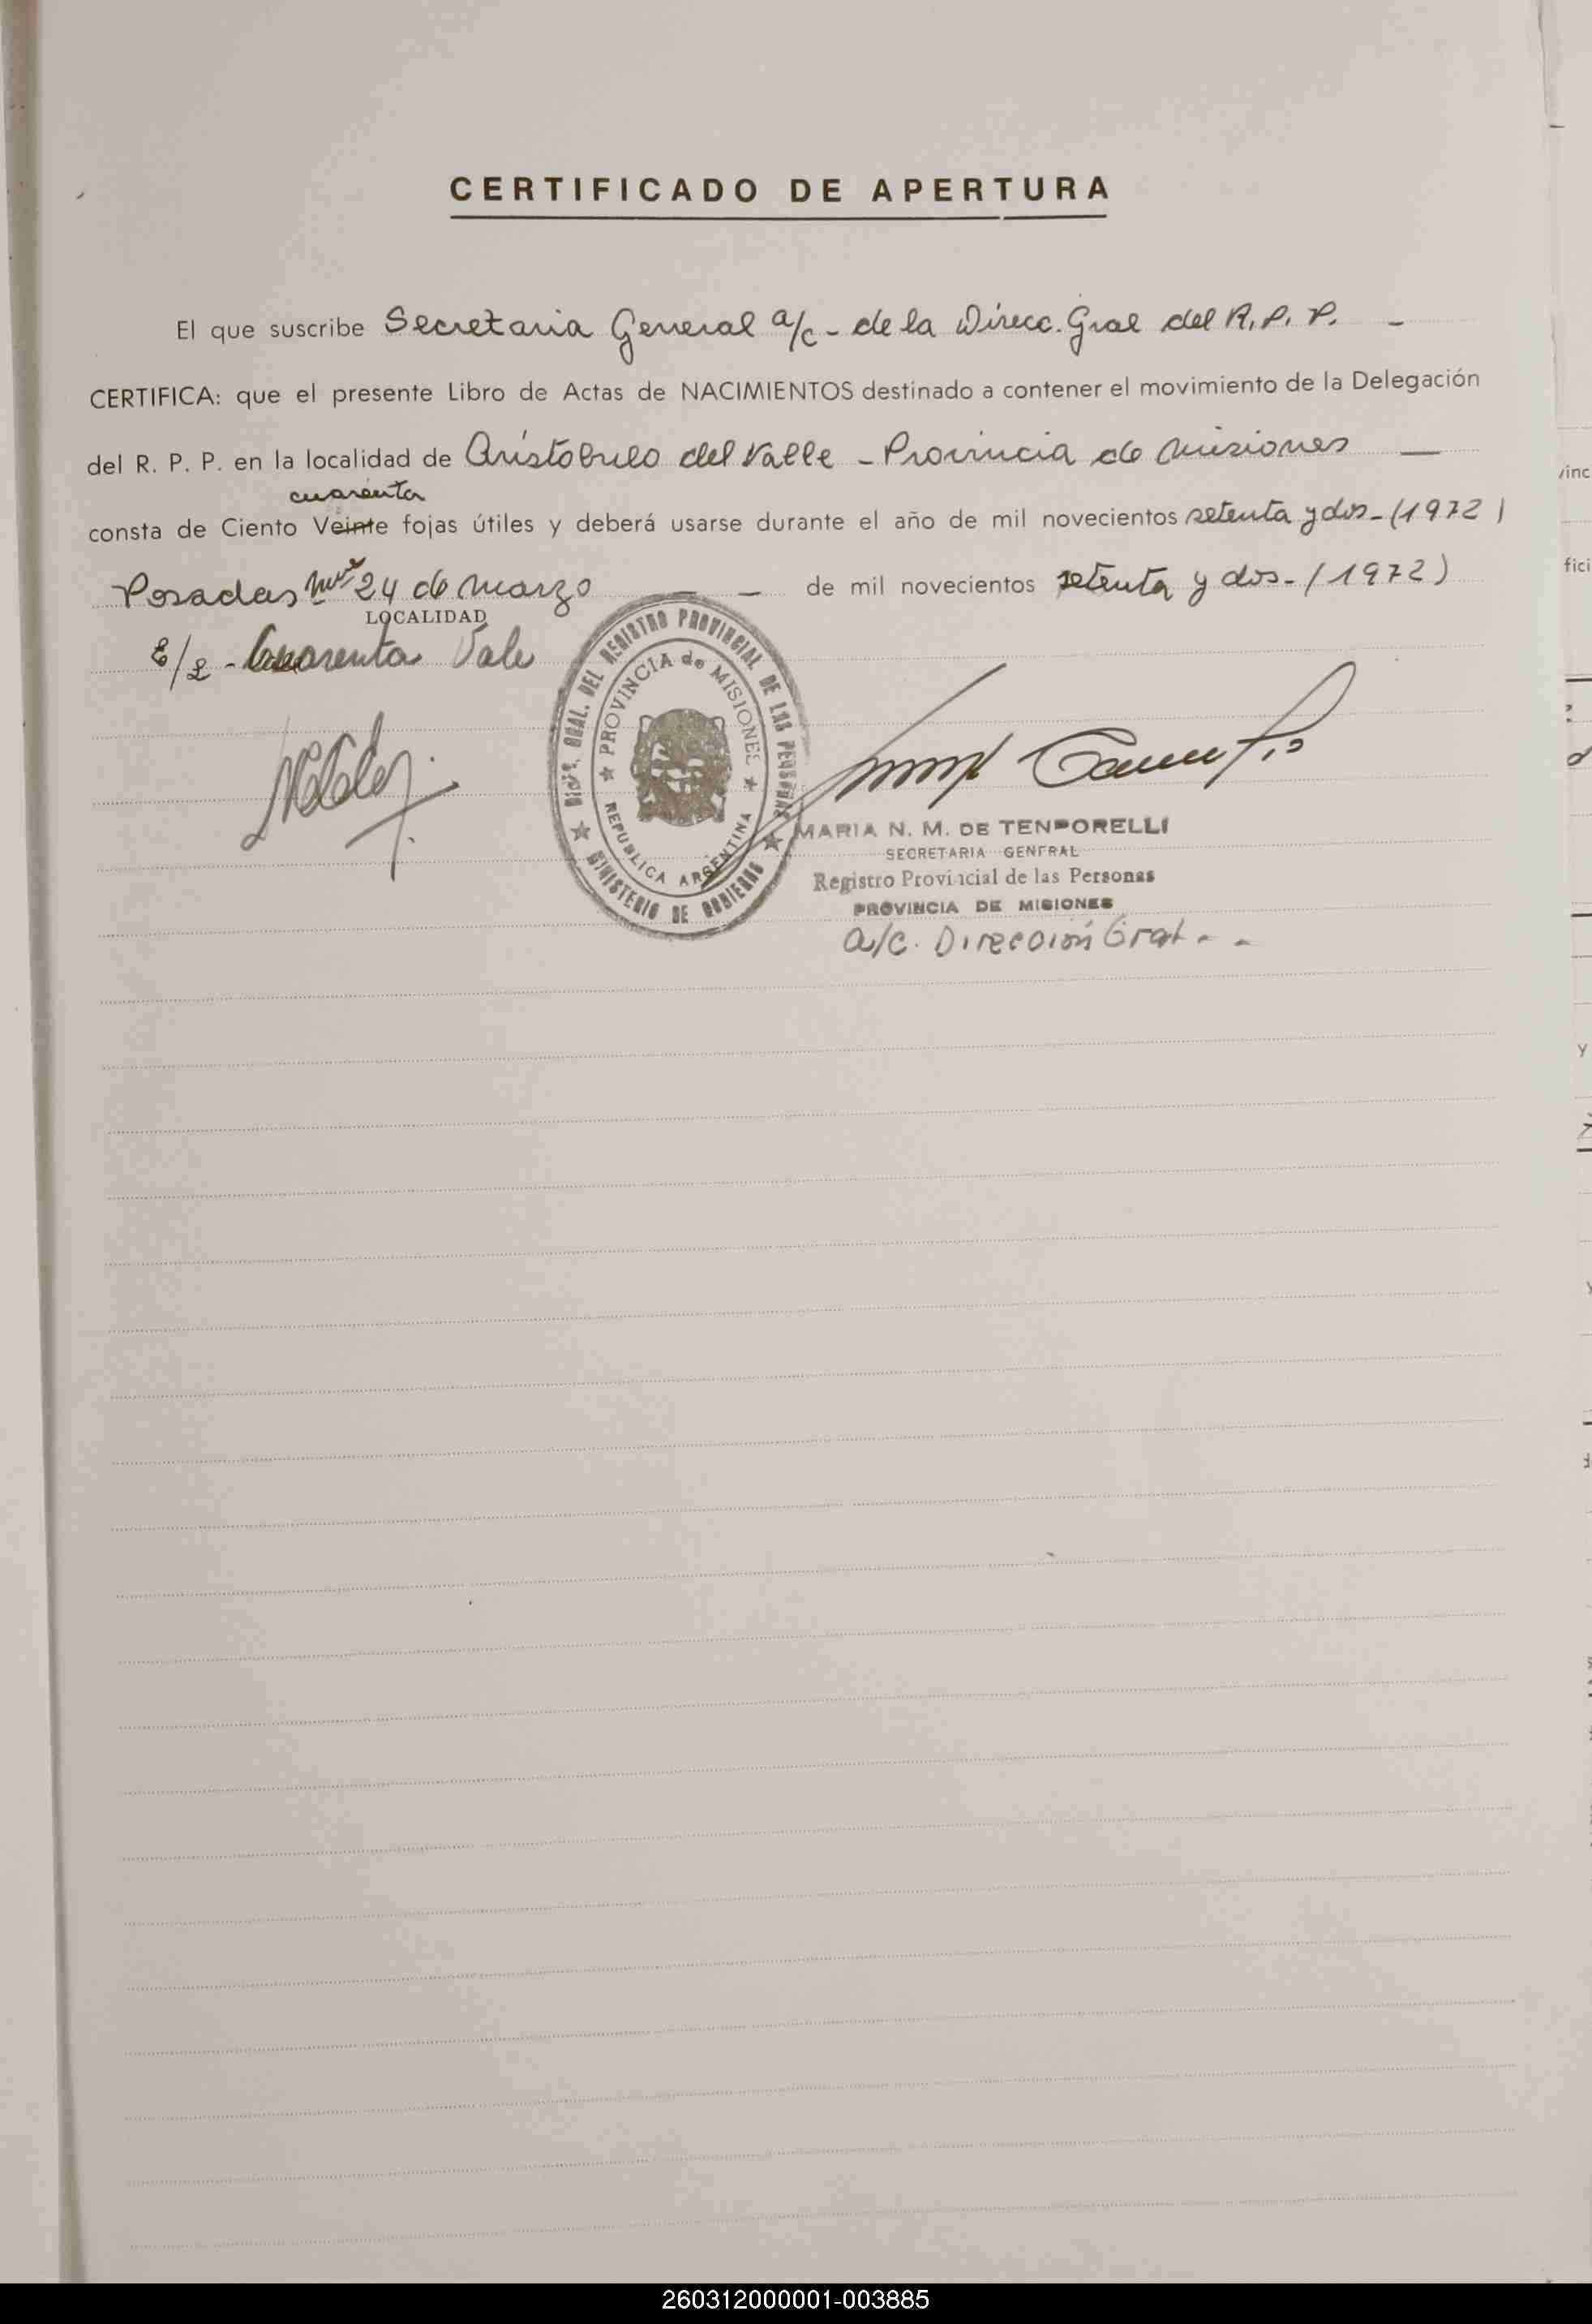 CERTIFICADO DE APERTURA
El que suscribe Secretaria General a/c - de la Direcc. Gral del R. P. P. -
CERTIFICA: que el presente Libro de Actas de NACIMIENTOS destinado a contener el movimiento de la Delegación
del R. P. P. en la localidad de Aristóbulo del Valle - Provincia de Misiones —
cuarenta
consta de Ciento Veinte fojas útiles y deberá usarse durante el año de mil novecientos setenta y dos - (1972)
Posadas Mnes 24 de Marzo — — de mil novecientos setenta y dos - (1972)
LOCALIDAD
E/L - Cuarenta Vale
DIREC. GRAL. DEL REGISTRO PROVINCIAL DE LAS PERSONAS
PROVINCIA de MISIONES
REPUBLICA ARGENTINA
MINISTERIO DE GOBIERNO
MARIA N. M. DE TEMPORELLI
SECRETARIA GENERAL
Registro Provincial de las Personas
PROVINCIA DE MISIONES
a/c. Dirección Gral - -
260312000001-003885